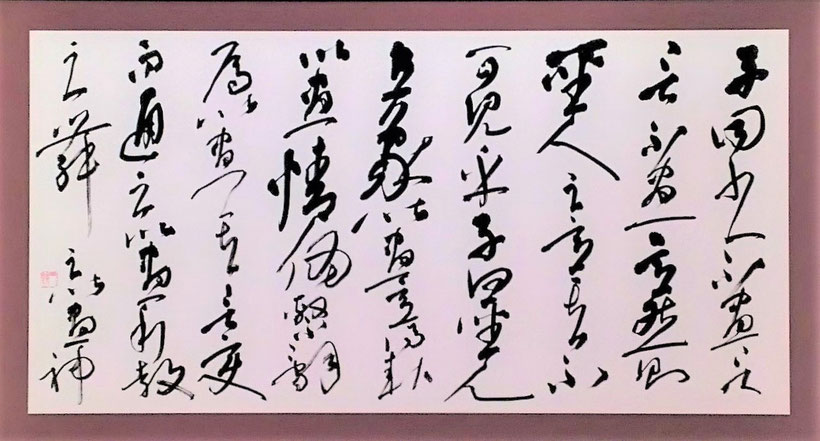 子曰書不盡言
言不盡意然則
聖人之意其不
可見乎子曰聖人
立象以盡意設卦
以盡情偽繫辭
焉以盡其言變
而通之以盡利鼓
之舞之以盡神